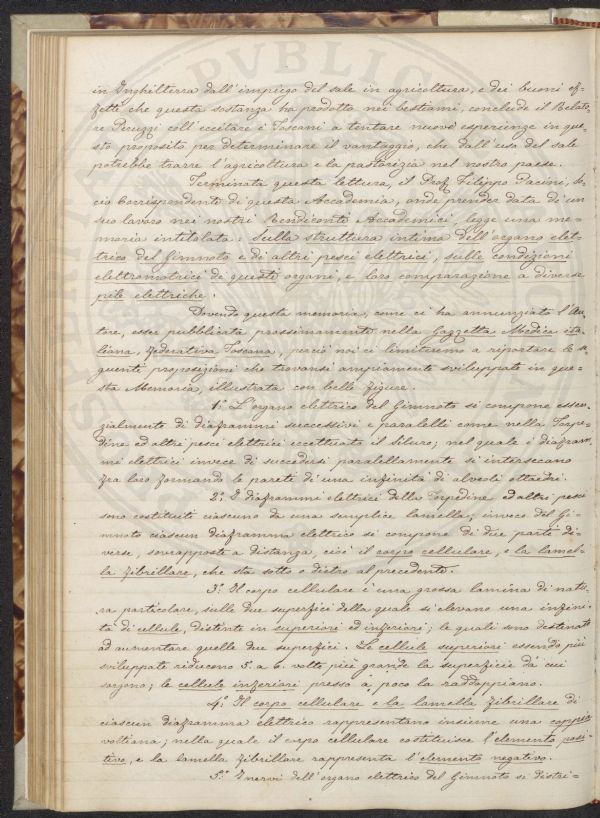 in Inghilterra dall'impiego del sale in agricoltura, e dei buoni ef-
fetti che questa sostanza ha prodotto nei bestiami, conclude il Relato-
re Peruzzi coll'eccitare i Toscani a tentare nuove esperienze in que-
sto proposito per determinare il vantaggio, che dall'uso del sale
potrebbe trarre l'agricoltura e la pastorizia nel nostro paese.
Terminata questa lettura, il Prof. Filippo Pacini, So-
cio Corrispondente di questa Accademia, onde prender data di un
suo lavoro nei nostri Rendiconti Accademici, legge una me-
moria intitolata: Sulla struttura intima dell'organo elet-
trico del Gimnoto e di altri pesci elettrici, sulle condizioni
elettromotrici di questi organi, e loro comparazione a diverse
pile elettriche.
Dovendo questa memoria, come ci ha annunziato l'Au-
tore, esser pubblicata prossimamente nella Gazzetta Medica ita-
liana, federativa Toscana, perciò noi ci limiteremo a riportare le se-
guenti proposizioni che trovansi ampiamente sviluppate in que-
sta Memoria, illustrata con belle figure.
1.° L'organo elettrico del Gimnoto si compone essen-
zialmente di diaframmi successivi e paralelli come nella Torpe-
dine ed altri pesci elettrici eccettuato il Siluro; nel quale i diafram-
mi elettrici invece di succedersi paralellamente si intersecano
fra loro formando le pareti di una infinità di alveoli ottaedri.
2.° I diaframmi elettrici della Torpedine ed altri pesci
sono costituiti ciascuno da una semplice lamella; invece del Gi-
mnoto ciascun diaframma elettrico si compone di due parti di-
verse, sovrapposte a distanza, cioè il corpo cellulare, e la lamel-
la fibrillare, che sta sotto o dietro al precedente.
3.° Il corpo cellulare è una grossa lamina di natu-
ra particolare, sulle due superfici della quale si elevano una infini-
tà di cellule, distinte in superiori ed inferiori; le quali sono destinate
ad aumentare quelle due superfici. Le cellule superiori essendo più
sviluppate riducono 5. a 6. volte più grande la superficie da cui
sorgono; le cellule inferiori presso a poco la raddoppiano.
4.° Il corpo cellulare e la lamella fibrillare di
ciascun diaframma elettrico rappresentano insieme una coppia
voltiana; nella quale il corpo cellulare costituisce l'elemento posi-
tivo, e la lamella fibrillare rappresenta l'elemento negativo.
5.° I nervi dell'organo elettrico del Gimnoto si distri-